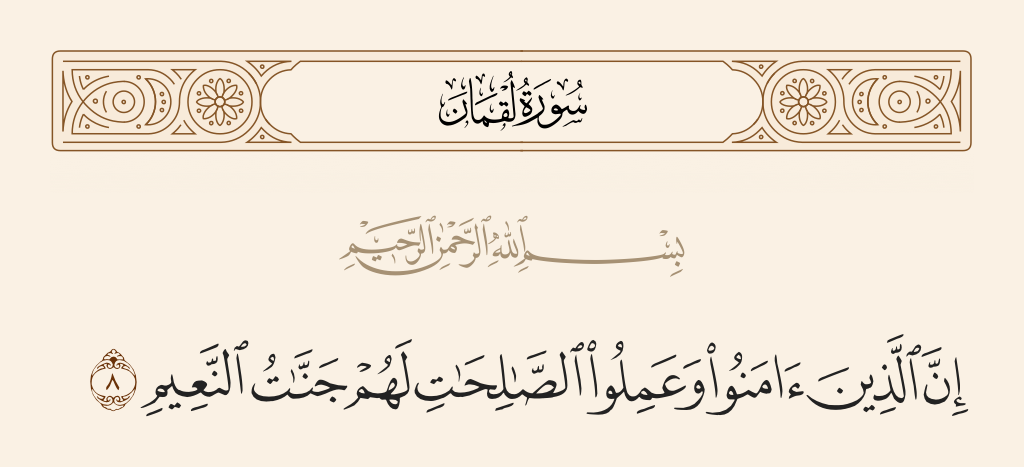 سُورَةُ لُقْمَان
بِسْمِ ٱللَّهِ ٱلرَّحْمَٰنِ ٱلرَّحِيمِ
إِنَّ ٱلَّذِينَ ءَامَنُوا۟ وَعَمِلُوا۟ ٱلصَّٰلِحَٰتِ لَهُمْ جَنَّٰتُ ٱلنَّعِيمِ ٨